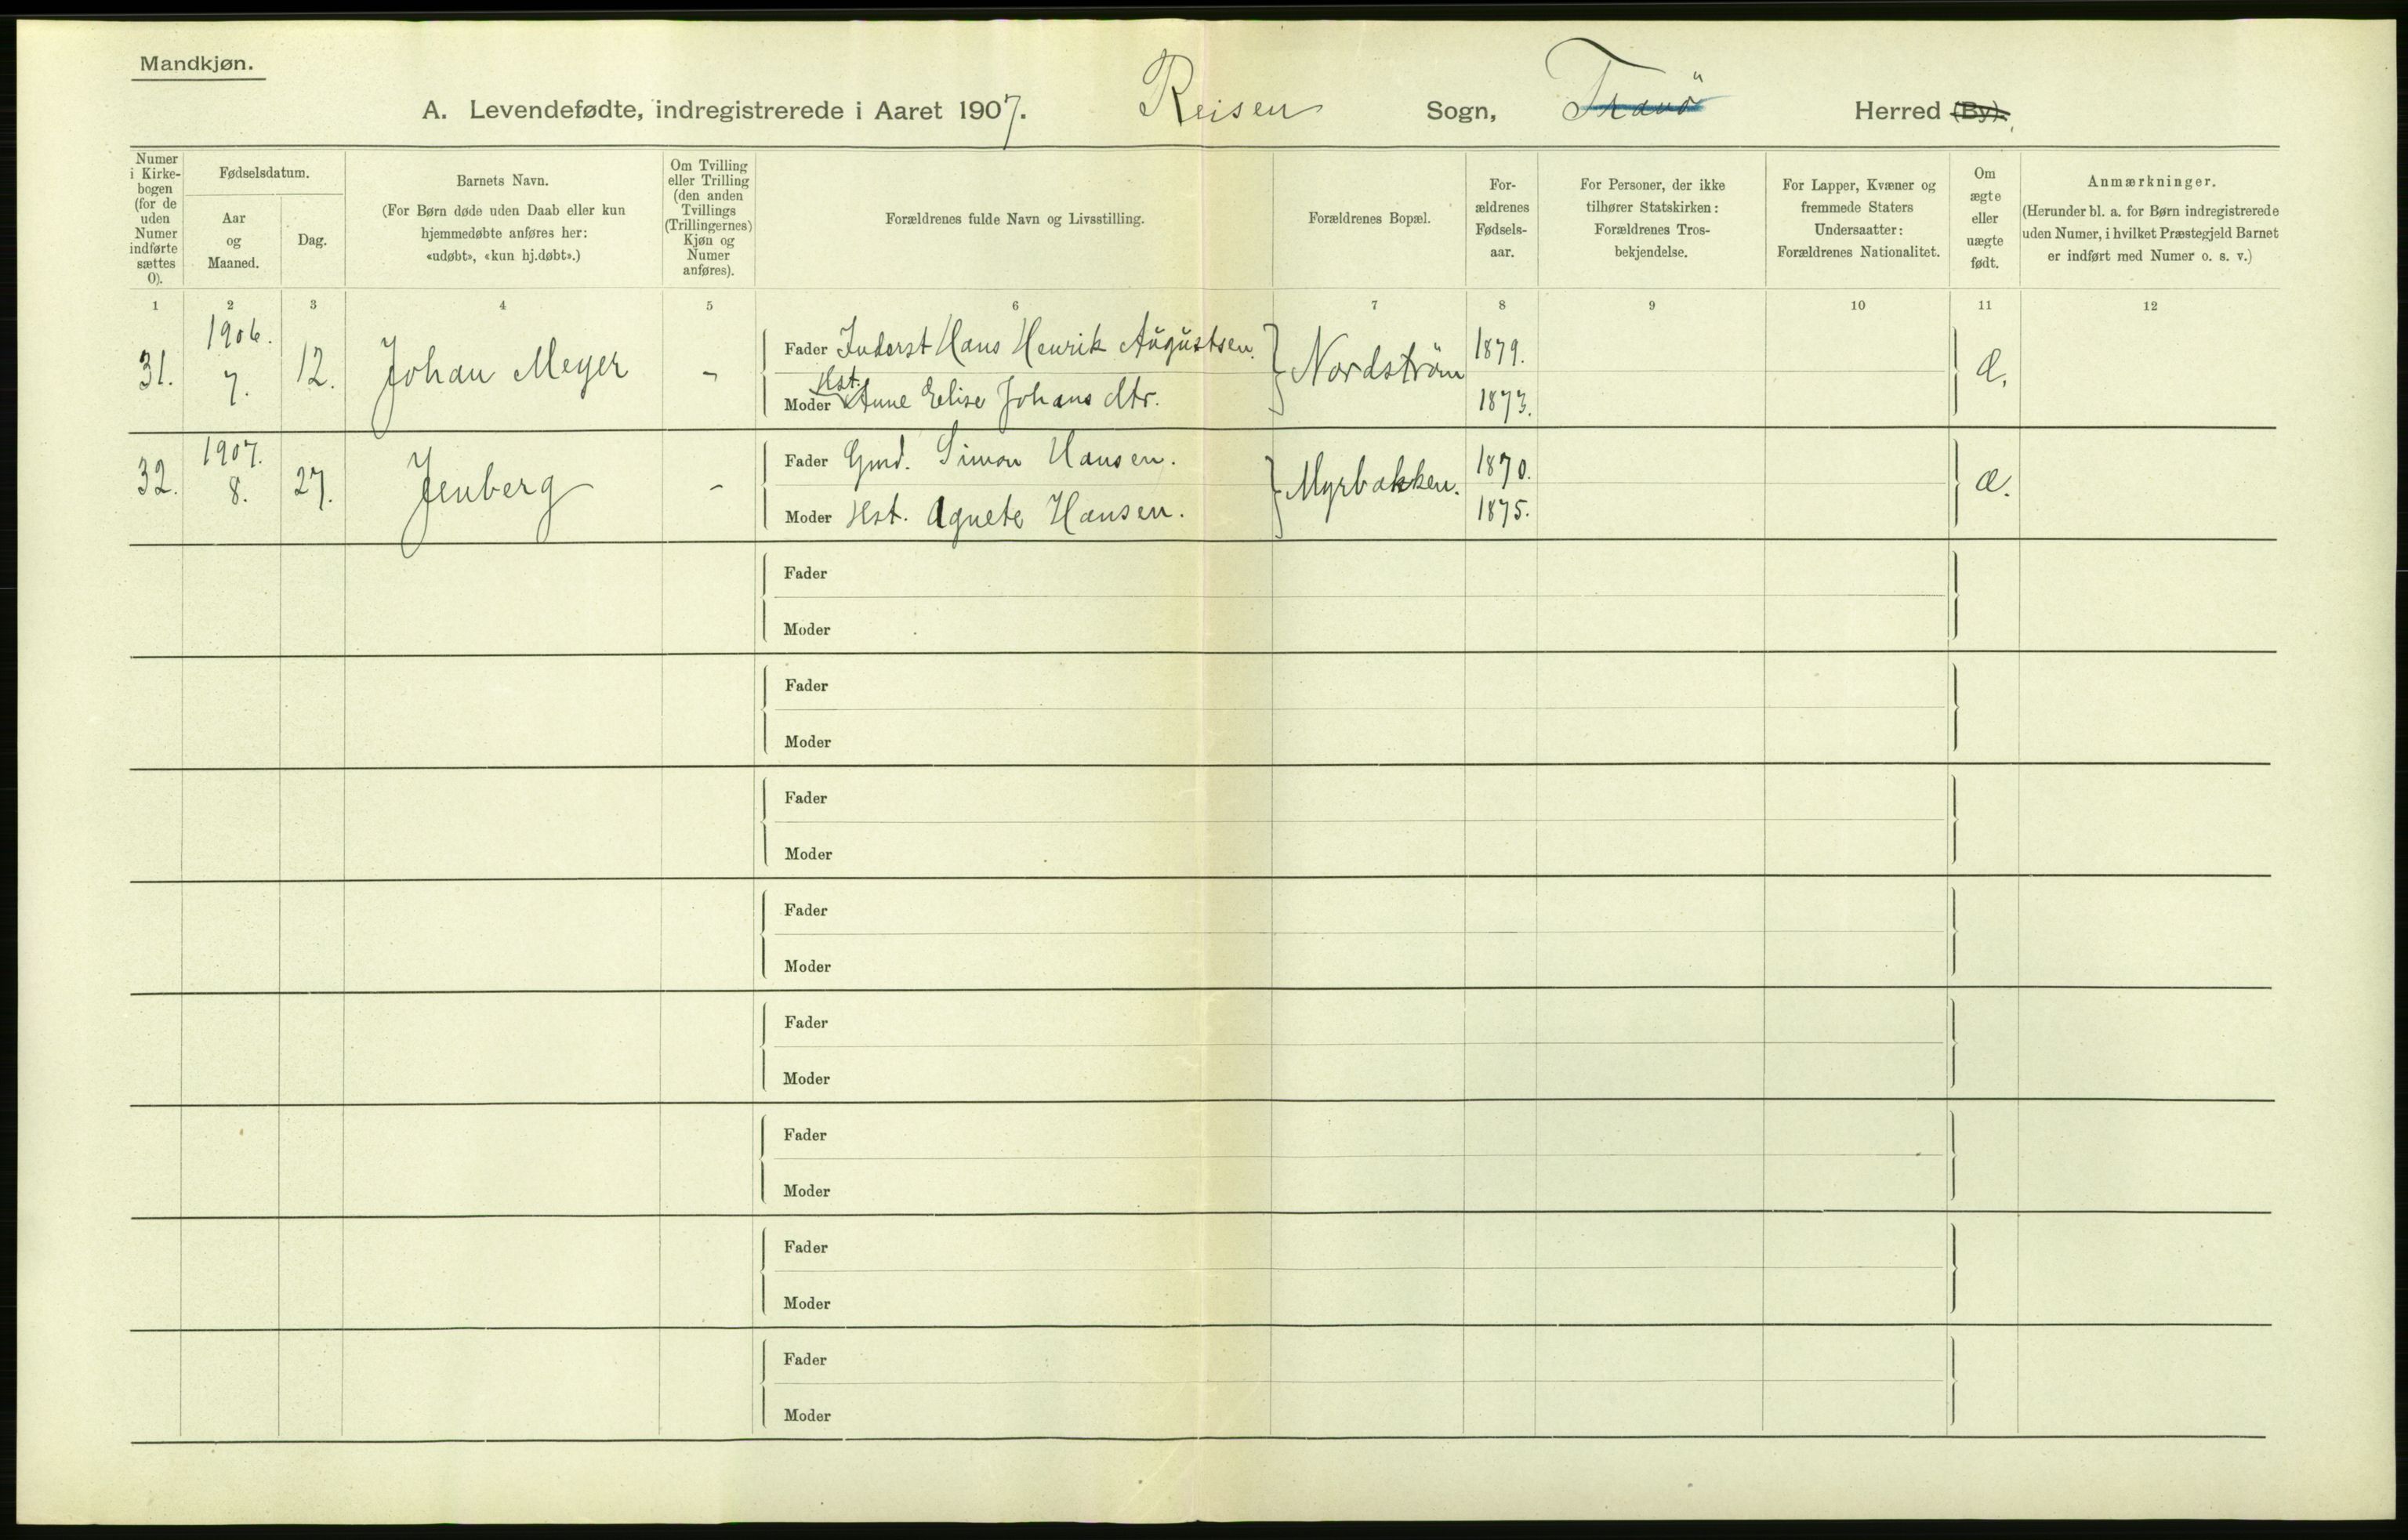 Mandkjøn.
A. Levendefødte, indregistrerede i Aaret 1907. Reisen Sogn, Tranö Herred (By).
Numer i Kirke-bogen (for de uden Numer indførte sættes 0).
Fødselsdatum.
Aar og Maaned.
Dag.
Barnets Navn.
(For Børn døde uden Daab eller kun hjemmedøbte anføres her: «udøbt», «kun hj.døbt».)
Om Tvilling eller Trilling (den anden Tvillings (Trillingernes) Kjøn og Numer anføres).
Forældrenes fulde Navn og Livsstilling.
Forældrenes Bopæl.
For-ældrenes Fødsels-aar.
For Personer, der ikke tilhører Statskirken: Forældrenes Tros-bekjendelse.
For Lapper, Kvæner og fremmede Staters Undersaatter: Forældrenes Nationalitet.
Om ægte eller uægte født.
Anmærkninger.
(Herunder bl. a. for Børn indregistrerede uden Numer, i hvilket Præstegjeld Barnet er indført med Numer o. s. v.)
1 2 3 4 5 6 7 8 9 10 11 12
31. 1906. 7. 12. Johan Meyer - Fader Inderst Hans Henrik Augustsen. Nordström 1879. æ.
Moder Hst. Anne Elise Johans dtr. 1873.
32. 1907. 8. 27. Jenberg - Fader Gmd. Simon Hansen. Myrbakken. 1870. æ.
Moder Hst. Agnete Hansen. 1875.
Fader
Moder
Fader
Moder
Fader
Moder
Fader
Moder
Fader
Moder
Fader
Moder
Fader
Moder
Fader
Moder